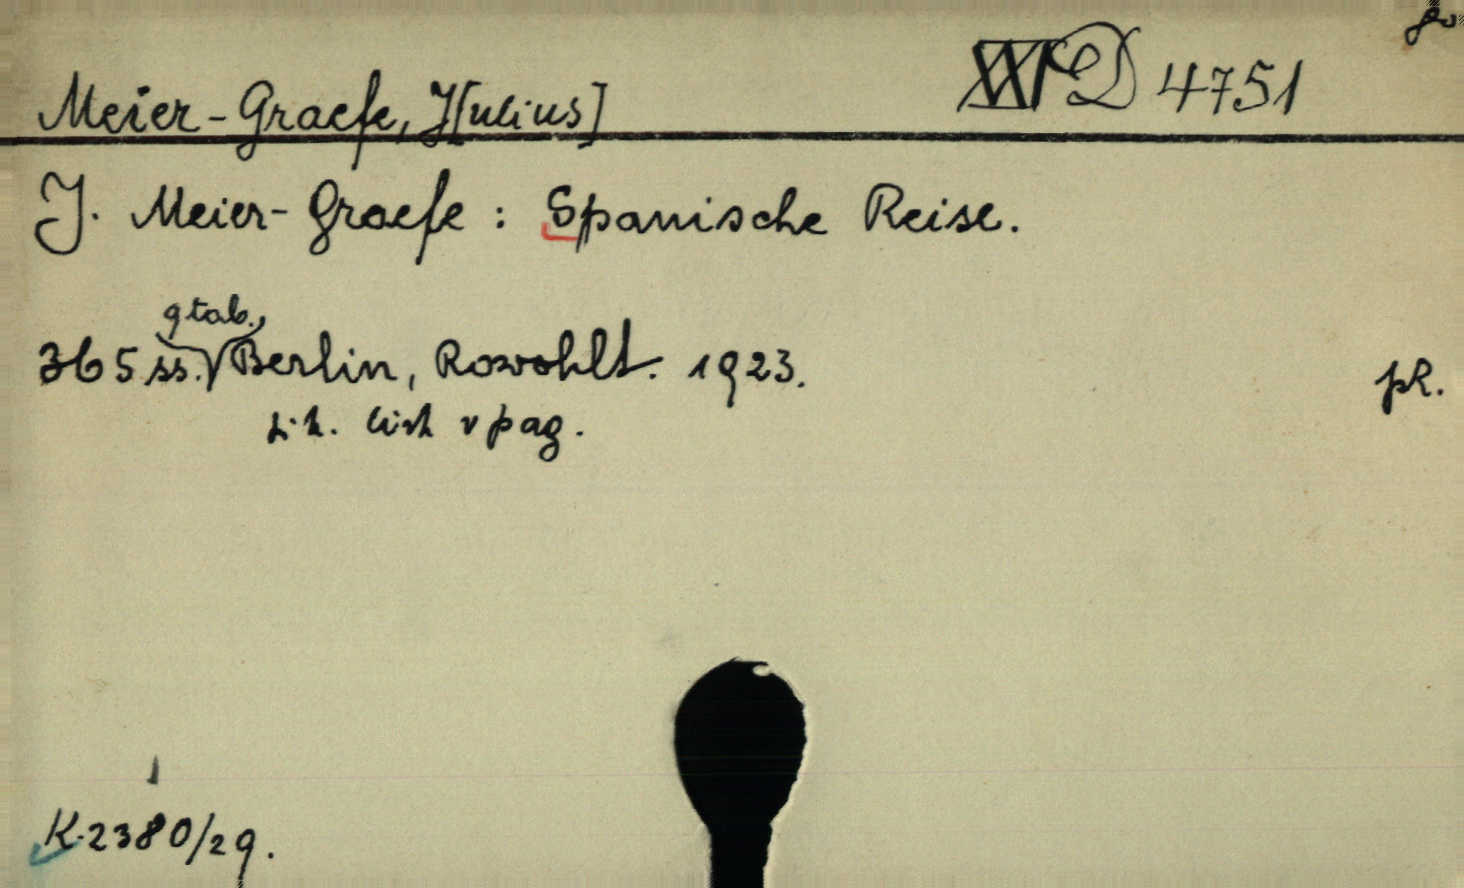 Meier-Graefe, J[ulius] XXI D 4751
J. Meier-Graefe: Spanische Reise.
9 tab.,
365 ss. Berlin, Rowohlt. 1923.
pag.
pR.
K.2380/29.